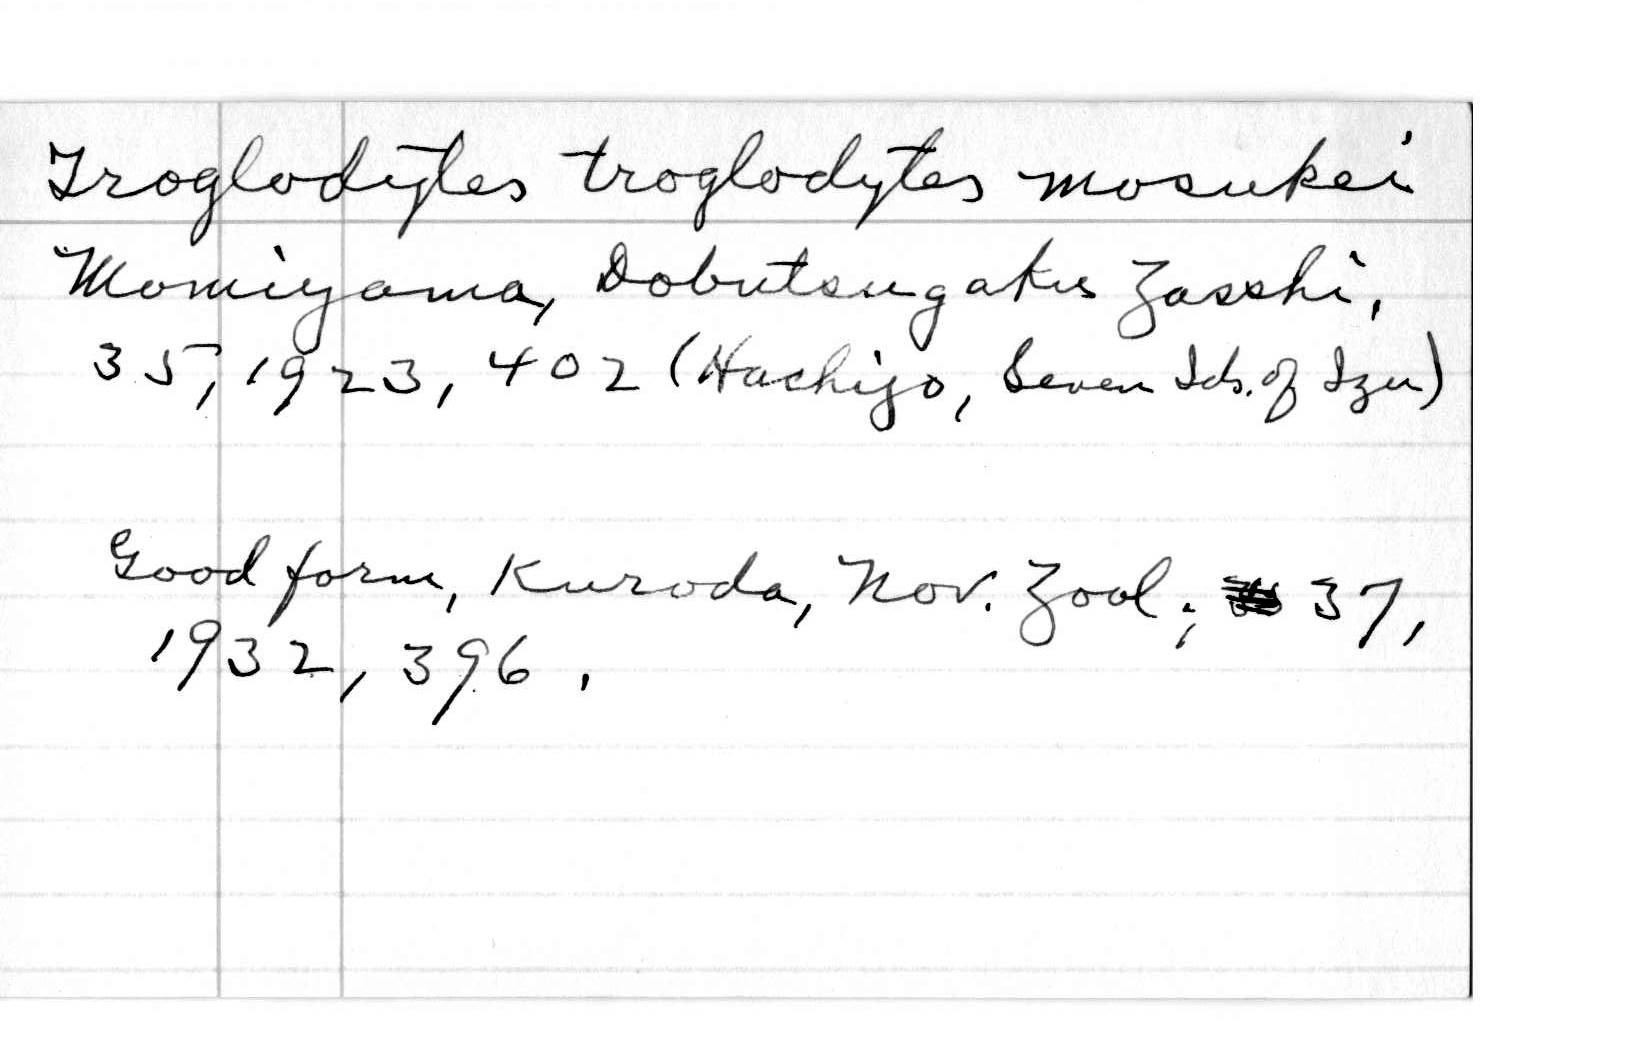 Troglodytes troglodytes mosukei
Momiyama, Dobutsugaku Zasshi,
35, 1923, 402 (Hachijo, Seven Ids. of Izu)
Good form, Kuroda, Nov. Zool., 37,
1932, 396.